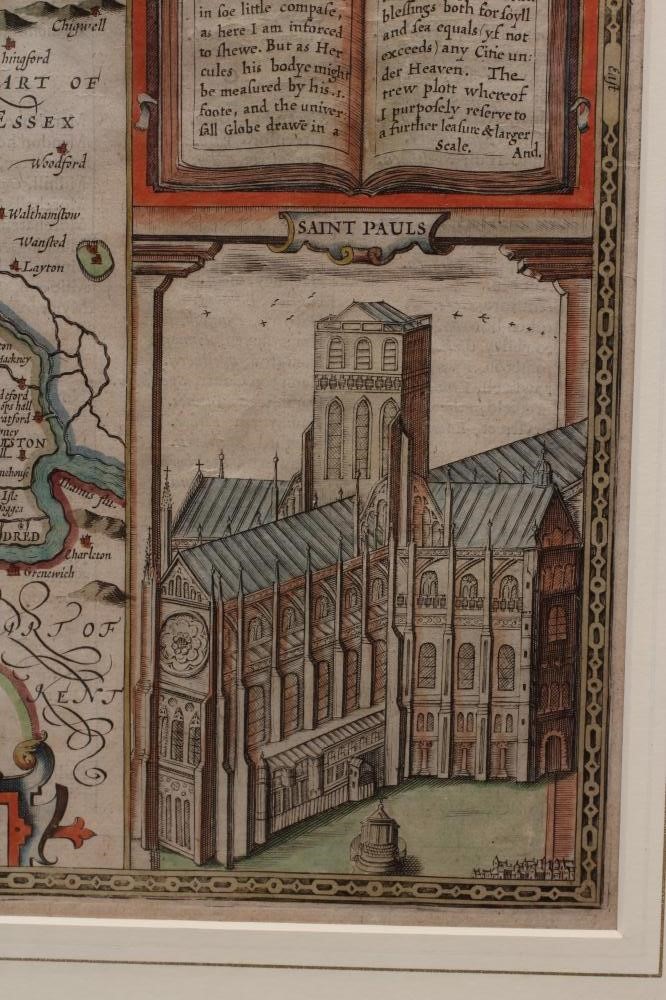 Chigwell
hingford
ART OF
ESSEX
Woodford
Walthamstow
Wansted
Layton
Hackney
ratford
STON
Isle
DRED
Thamis flu.
Charleton
Grenewich
ART OF
KENT
in soe little compase,
as here I am inforced
to shewe. But as Her
cules his bodye might
be measured by his .1.
foote, and the univer
sall Globe drawē in a
blessings both for soyll
and sea equals (yf not
exceeds) any Citie un:
der Heaven. The
trew plott whereof
I purposely reserve to
a further leasure & larger
Scale. And.
East
SAINT PAULS